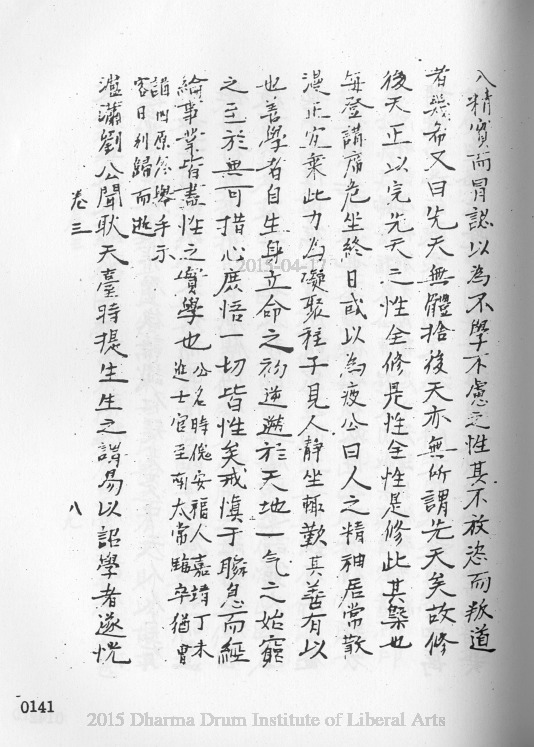 入精實而冒認以為不學不慮之性其不放恣而叛道
者幾希又曰先天無體捨後天亦無所謂先天矣故修
後天正以完先天之性全修是性全性是修此其槩也
每登講席危坐終日或以為疲公曰人之精神居常散
漫正宜乘此力為凝聚種子見人靜坐輒歎其善有以
也善學者自生身立命之初逆遡於天地一气之始窮
之至於無可措心處悟一切皆性矣戒慎于瞬息而經
綸事業皆盡性之實學也公名時儁安福人嘉靖丁未
進士官至南太常臨卒猶冐
詣四原公舉手示
客日別歸而逝
瀘瀟劉公聞耿天臺時提生生之謂易以詔學者遂恍
卷三
八
2015-04-17
0141
2015 Dharma Drum Institute of Liberal Arts